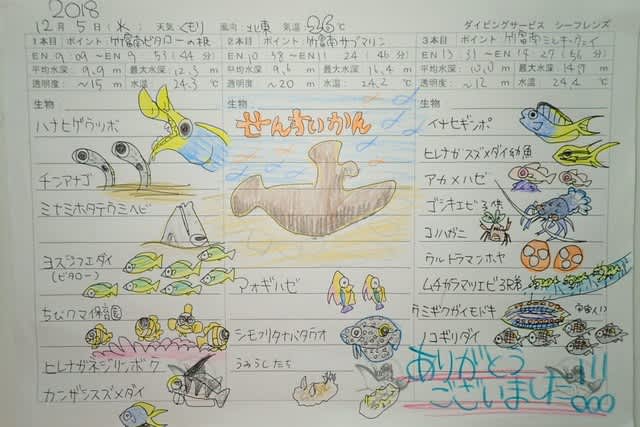 2018
12月5日(水) 天気 くもり 風向 北東 気温 26℃ ダイビングサービス シーフレンズ
1本目 ポイント 竹富南ビタローの根
EN 9:09 〜 EN 9:53 (44分)
平均水深: 9.9 m 最大水深: 12.3 m
透明度: 〜15 m 水温: 24.3℃
生物
ハナヒゲウツボ
チンアナゴ
ミナミホタテウミヘビ
ヨスジフエダイ
(ビタロー)
ちびクマ保育園
ヒレナガネジリンボウ
カンザシスズメダイ
2本目 ポイント 竹富南サブマリン
EN 10:38 〜 EX 11:24 (46分)
平均水深: 9.6 m 最大水深: 16.4 m
透明度: 〜20 m 水温: 24.2℃
生物
せんすいかん
アオギハゼ
シモフリタナバタウオ
うみうしたち
3本目 ポイント 竹富南ミルキーウェイ
EN 13:31 〜 14:27 (56分)
平均水深: 10.0 m 最大水深: m
透明度: 〜12 m 水温: 24.4℃
生物
イナセギンポ
ヒレナガスズメダイ幼魚
アカメハゼ
ゴシキエビ3体
コノハガニ
ウルトラマンホヤ
ムチカラマツエビ3兄弟
ウミギクガイモドキ
ノコギリダイ
ありがとう
ございました!!!